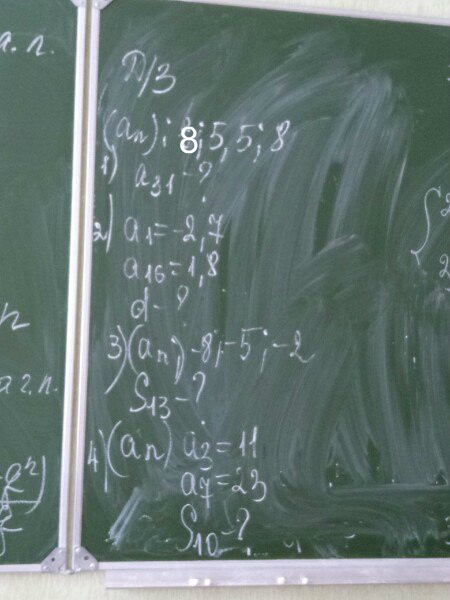 а.п.
Д/З
(an): 8; 5,5; 8
1) a31 - ?
2) a1 = -2,7
a16 = 1,8
d - ?
3) (an) -8; -5; -2
S13 - ?
4) (an) a3 = 11
a7 = 23
S10 - ?